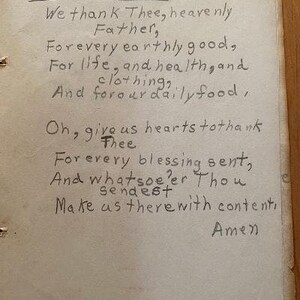 We thank Thee, heavenly
Father,
For every earthly good,
For life, and health, and
clothing,
And for our daily food.
Oh, give us hearts to thank
Thee
For every blessing sent,
And whatsoe'er Thou
sendest
Make us therewith content.
Amen